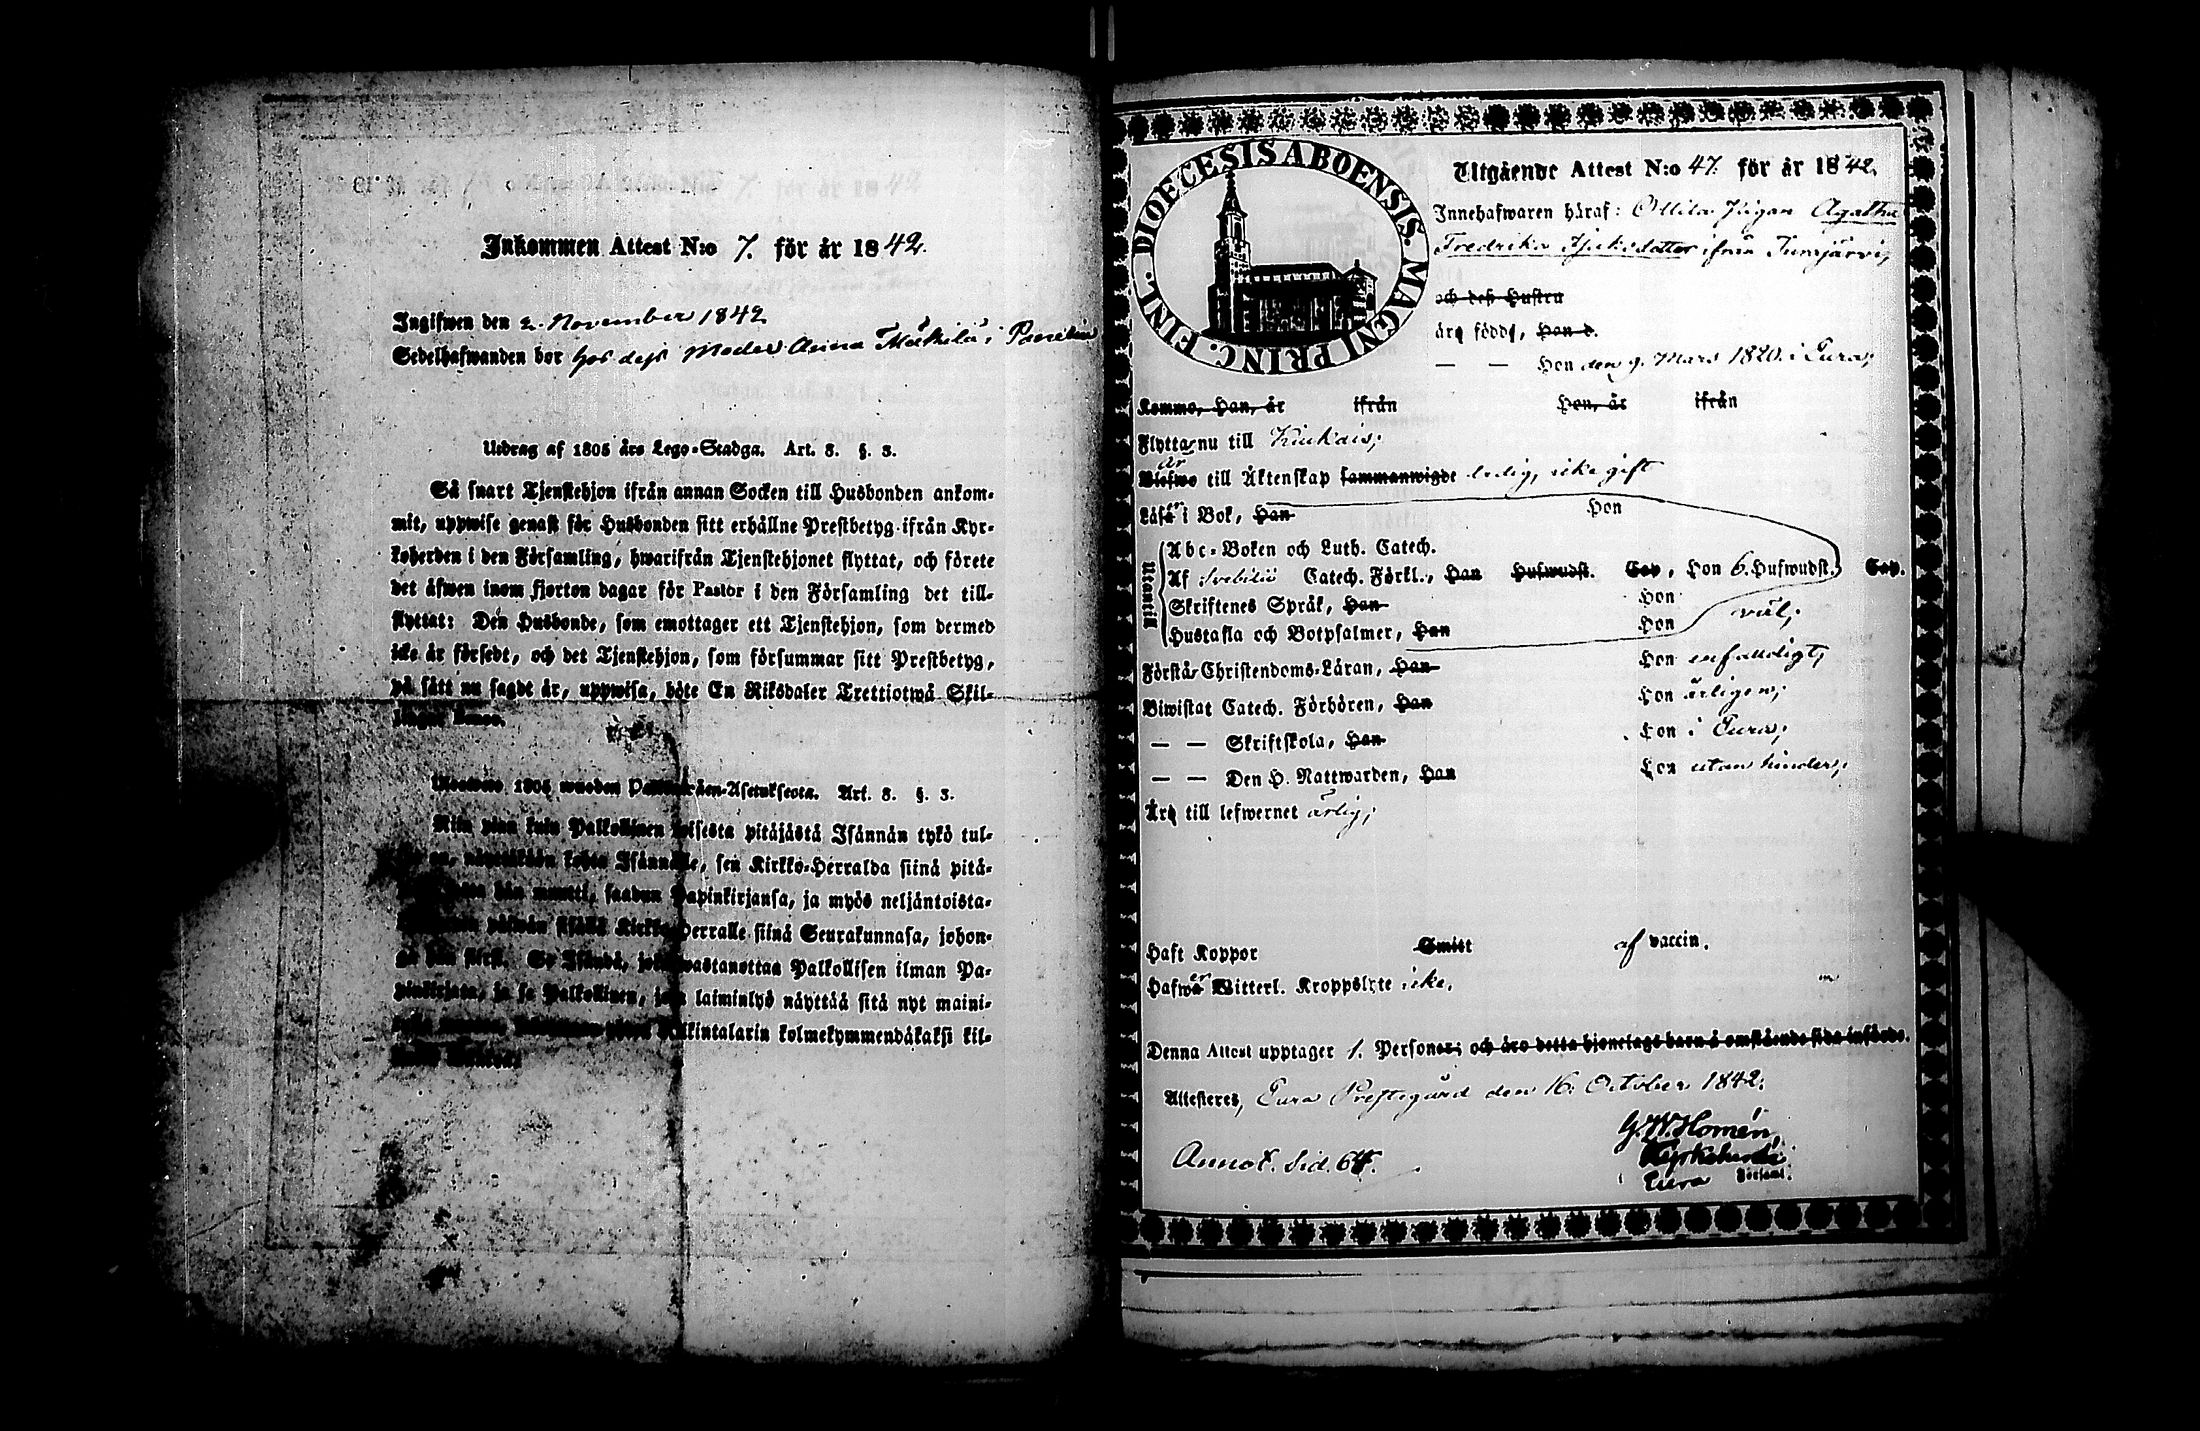 Inkommen Attest N:o 7. för år 1842.
Ingifwen den 2. November 1842
Sedelhafwanden bor hos dess Moder Anna Mäkilä i
Utdrag af 1805 års Lego-Stadga. Art. 8. §. 3.
Så snart Tjenstehjon ifrån annan Socken till Husbonden ankom-
mit, uppwise genast för Husbonden sitt erhållne Prestbetyg ifrån Kyr-
koherden i den Församling, hwarifrån Tjenstehjonet flyttat, och förete
det äfwen inom fjorton dagar för Pastor i den Församling det till-
flyttat: Den Husbonde, som emottager ett Tjenstehjon, som dermed
icke är försedt, och det Tjenstehjon, som försummar sitt Prestbetyg,
på sätt nu sagdt är, uppwisa, böte En Riksdaler Trettiotwå Skil-
lingar Banco.
1805 wuoden Asetuksesta. Art. 8. §. 3.
Niin pian kuin Palkollinen toisesta pitäjästä Isännän tykö tul-
lut on, Isännälle, sen Kirkko-Herralda siinä pitä-
hän muutti, saadun Papinkirjansa, ja myös neljäntoista-
päiwän sisällä Kirkko-Herralle siinä Seurakunnasa, johon-
ga hän siirsi. Se Isändä, joka wastanottaa Palkollisen ilman Pa-
pinkirjata, ja se Palkollinen, joka laiminlyö näyttää sitä nyt maini-
Riikintalarin kolmekymmendäkaksi kil-
DIOECESIS ABOENSIS. MAGNI PRINC. FINL.
Utgående Attest N:o 47. för år 1842.
Innehafwaren häraf: Pigan Agatha
Fredrika ifrån
och dess Hustru
äro födde, Han d.
— — Hon den 9. Mars 1820. i Eura;
Komme, Han, år ifrån Hon, år ifrån
Flyttar nu till Kiukais;
är
Blefwo till Äktenskap sammanwigde ledig, icke gift
Läser i Bok, Han Hon
Utantill
Abc-Boken och Luth. Catech.
Af Svebilii Catech. Förkl., Han Hufwudst. Cap, Hon 6. Hufwudst. Cap.
Skriftenes Språk, Han Hon
Hustafla och Botpsalmer, Han Hon väl;
Förstår Christendoms-Läran, Han Hon enfaldigt;
Biwistat Catech. Förhören, Han Hon årligen;
— — Skriftskola, Han Hon i Eura;
— — Den H. Nattwarden, Han Hon utan hinder;
Äro till lefwernet ärlig;
Haft Koppor Smitt af vaccin.
er
Hafwa Witterl. Kroppslyte icke.
Denna Attest upptager 1. Personer; och äro detta hjonelags barn å omstående sida införde.
Attesteres, Eura Prestegård den 16. October 1842.
G. W. Homén,
Kyrkoherde
i Eura Församl.
Annot. Sid. 64.